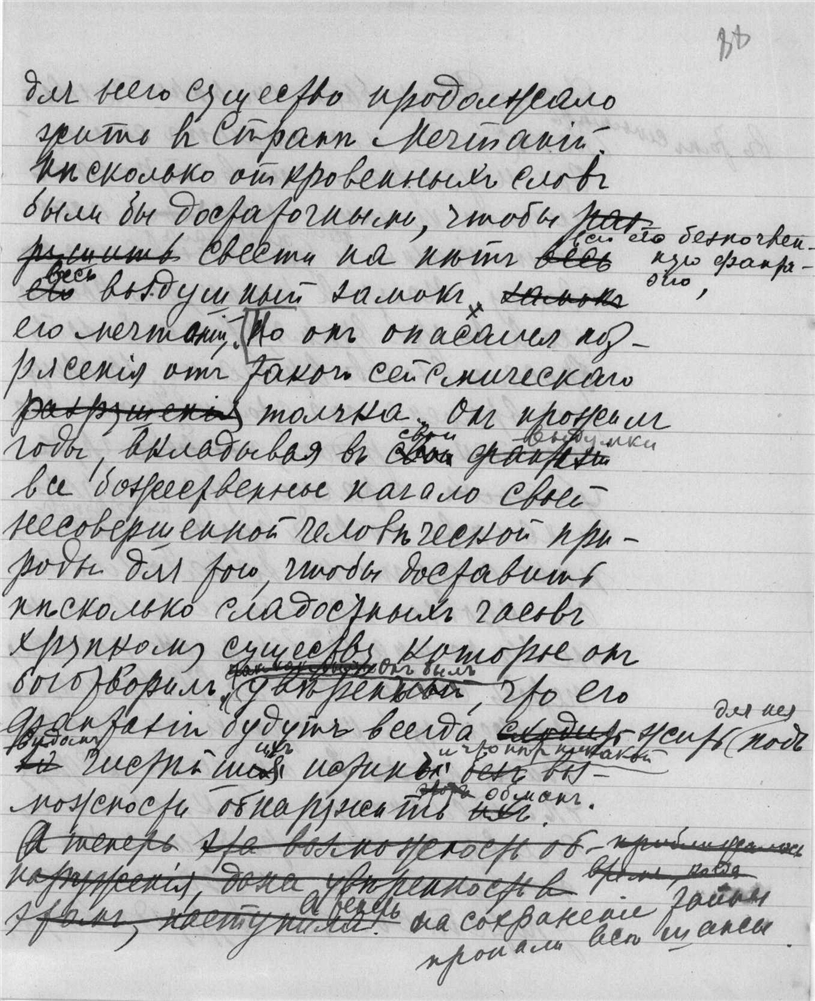 88
для него существо продолжало
жить въ Странѣ Мечтаній.
Нѣсколько откровенныхъ словъ
были бы достаточными, чтобы раз-
рушить свести на нѣтъ весь всю его безпочвен-
ную фанта-
зію,
его весь воздушный замокъ замокъ
его мечтаній. Но онъ опасался по-
трясенія отъ такого сейсмическаго
разрушенія толчка. Онъ прожилъ
годы, вкладывая въ свои фантазіи выдумки
все божественное начало своей
несовершенной человѣческой при-
роды для того, чтобы доставить
нѣсколько сладостныхъ часовъ
хрупкому существу, которое онъ
боготворилъ, онъ былъ увѣренъ, что его
фантазіи будутъ всегда сходить жить для нея (подъ
видомъ чистѣйшихъ истинъ и что нѣтъ никакой безъ воз-
можности обнаружить ихъ этотъ обманъ.
А теперь эта возможность об- приближалось
наруженія, дана увѣренность в время, когда
этомъ, наступила. А теперь на сохраненіе тайны
пропали всѣ шансы.